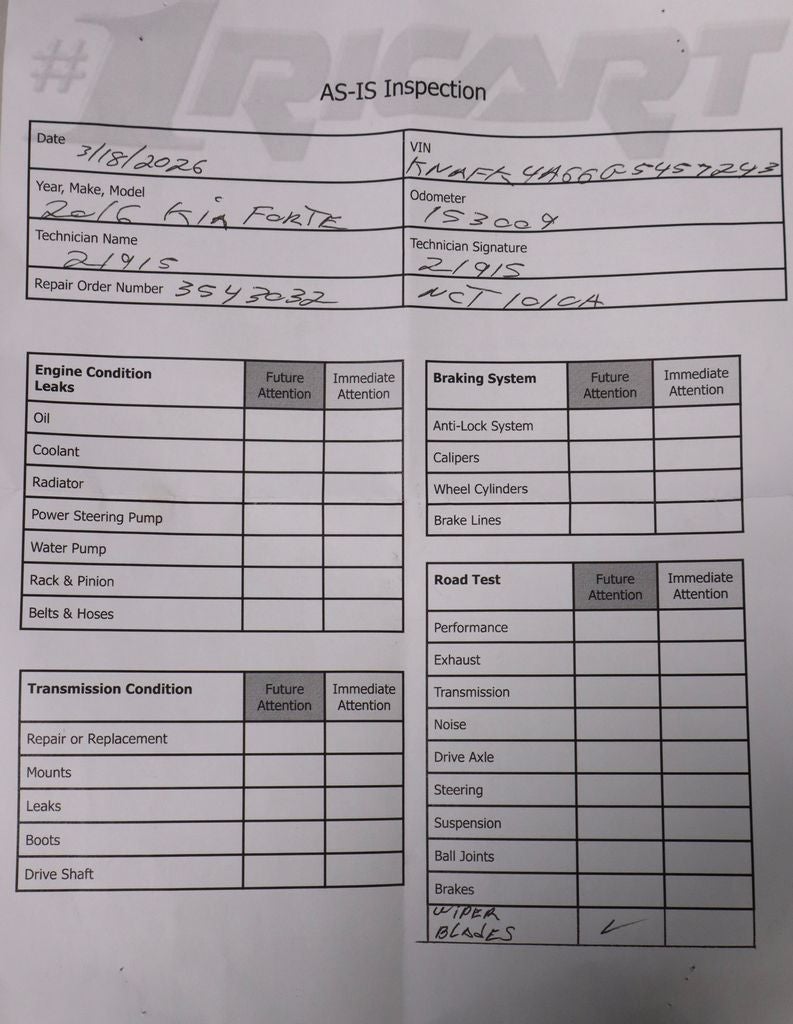 #1 RICART
AS-IS Inspection
Date 3/18/2026
VIN KNAFK4A66G5457243
Year, Make, Model 2016 Kia FORTE
Odometer 153009
Technician Name 21915
Technician Signature 21915
Repair Order Number 3543032
NCT1010A
Engine Condition Leaks Future Attention Immediate Attention
Oil
Coolant
Radiator
Power Steering Pump
Water Pump
Rack & Pinion
Belts & Hoses
Transmission Condition Future Attention Immediate Attention
Repair or Replacement
Mounts
Leaks
Boots
Drive Shaft
Braking System Future Attention Immediate Attention
Anti-Lock System
Calipers
Wheel Cylinders
Brake Lines
Road Test Future Attention Immediate Attention
Performance
Exhaust
Transmission
Noise
Drive Axle
Steering
Suspension
Ball Joints
Brakes
WIPER
BLADES ✓